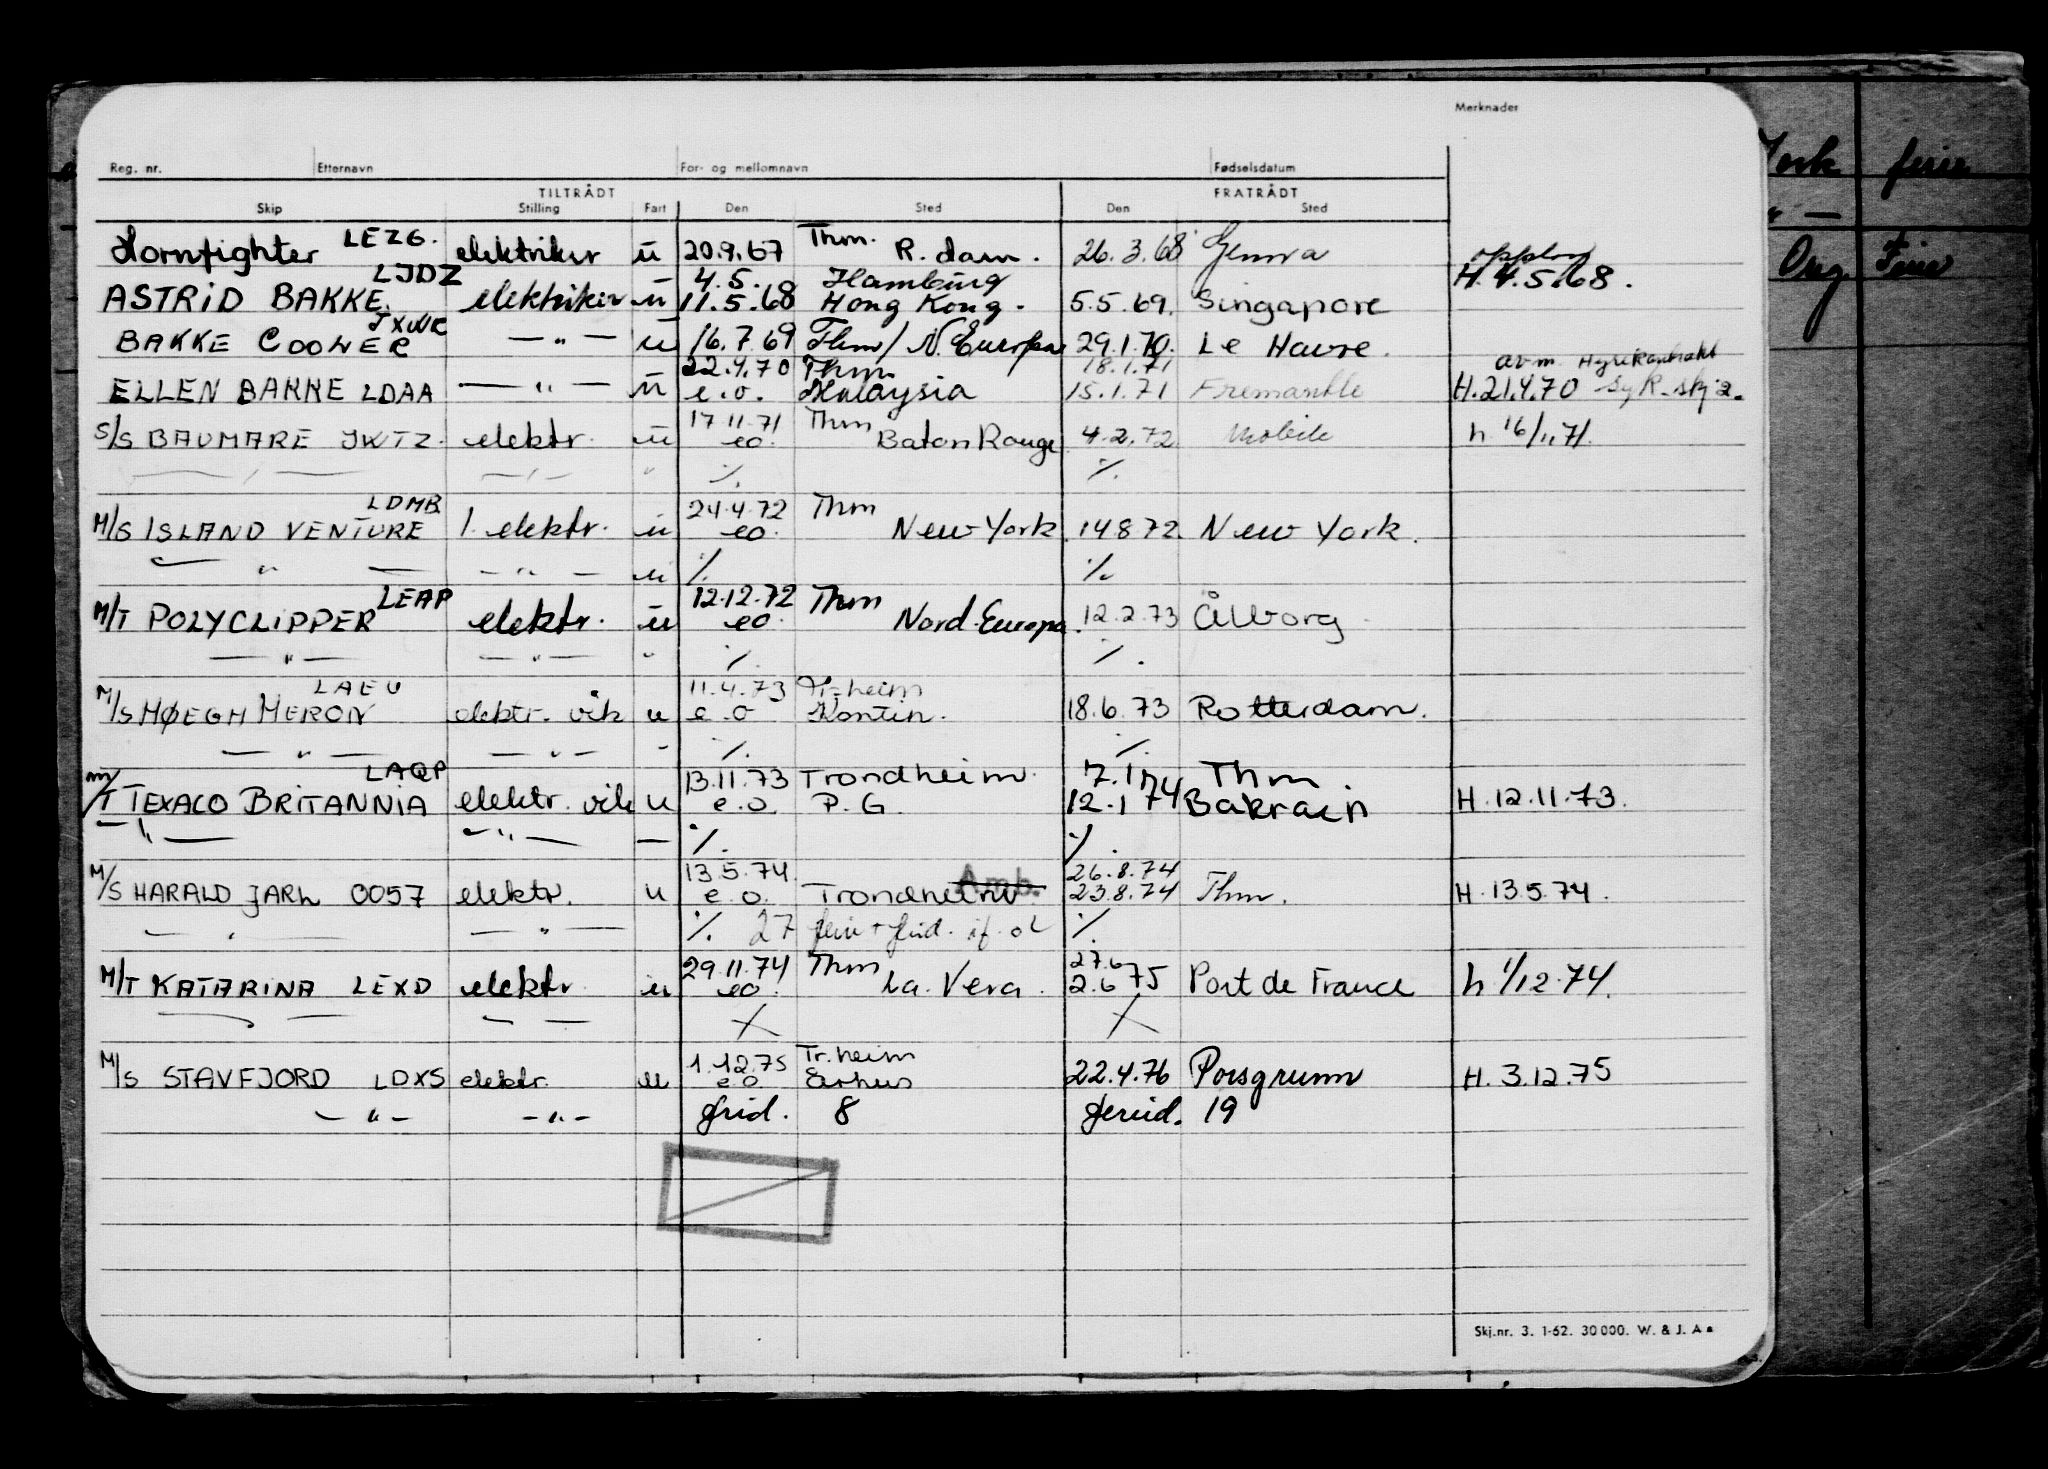 Merknader
Reg. nr. Etternavn For- og mellomnavn Fødselsdatum
TILTRÅDT FRATRÅDT
Skip Stilling Fart Den Sted Den Sted
Hornfighter LEZG. elektriker u 20.9.67 Thm. R.dam. 26.3.68 Genova
LJDZ 4.5. Hamburg
ASTRID BAKKE elektriker u 11.5.68 Hong Kong. 5.5.69. Singapore H.4.5.68.
BAKKE COOLER JXWR — " — u 16.7.69 Thm / N.Europa 29.1.70. Le Havre.
22.4.70 Thm 18.1.71 av m. Hyrekontrakt
ELLEN BAKKE LDAA — " — u e.o. Malaysia 15.1.71 Fremantle H.21.4.70 syk-skj 2.
17.11.71 Thm
S/S BAUMARE JWTZ. elektr. u eo. Baton Rouge 4.2.72 Mobile h 16/11.71.
— " — — " — " ./. ./.
LDMB 24.4.72 Thm
M/S ISLAND VENTURE 1. elektr. u eo. New York 14.8.72. New York.
— " — — " — u ./. ./.
LEAP 12.12.72 Thm
M/T POLYCLIPPER elektr. u eo. Nord-Europa. 12.2.73 Ålborg
— " — — " — " ./. ./.
LAEU 11.4.73 Tr-heim
M/S HØEGH MERON elektr. vik u e.o Kontin. 18.6.73 Rotterdam.
— " — — " — " ./. ./.
LAQP 13.11.73 Trondheim. 7.1.74 Thm
M/T TEXACO BRITANNIA elektr. vik u e.o. P.G. 12.1.74 Bahrain H.12.11.73.
— " — — " — — ./. ./.
13.5.74. Amb. 26.8.74
M/S HARALD JARL 0057 elektr. u e.o. Trondheim 23.8.74 Thm. H.13.5.74.
— " — — " — ./. 27 ./.
29.11.74 Thm 27.6
M/T KATARINA LEXD elektr u eo. La Vera. 2.6.75 Port de France h 1/12.74.
— — — — X X
1.12.75 Tr.heim
M/S STAVFJORD LDXS elektr. u e.o Aarhus 22.4.76 Porsgrunn H.3.12.75
— " — — " — frid. 8 ferrid. 19
Skj.nr. 3. 1-62. 30 000. W. & J. A
York ferie
" —
Aug. Ferie